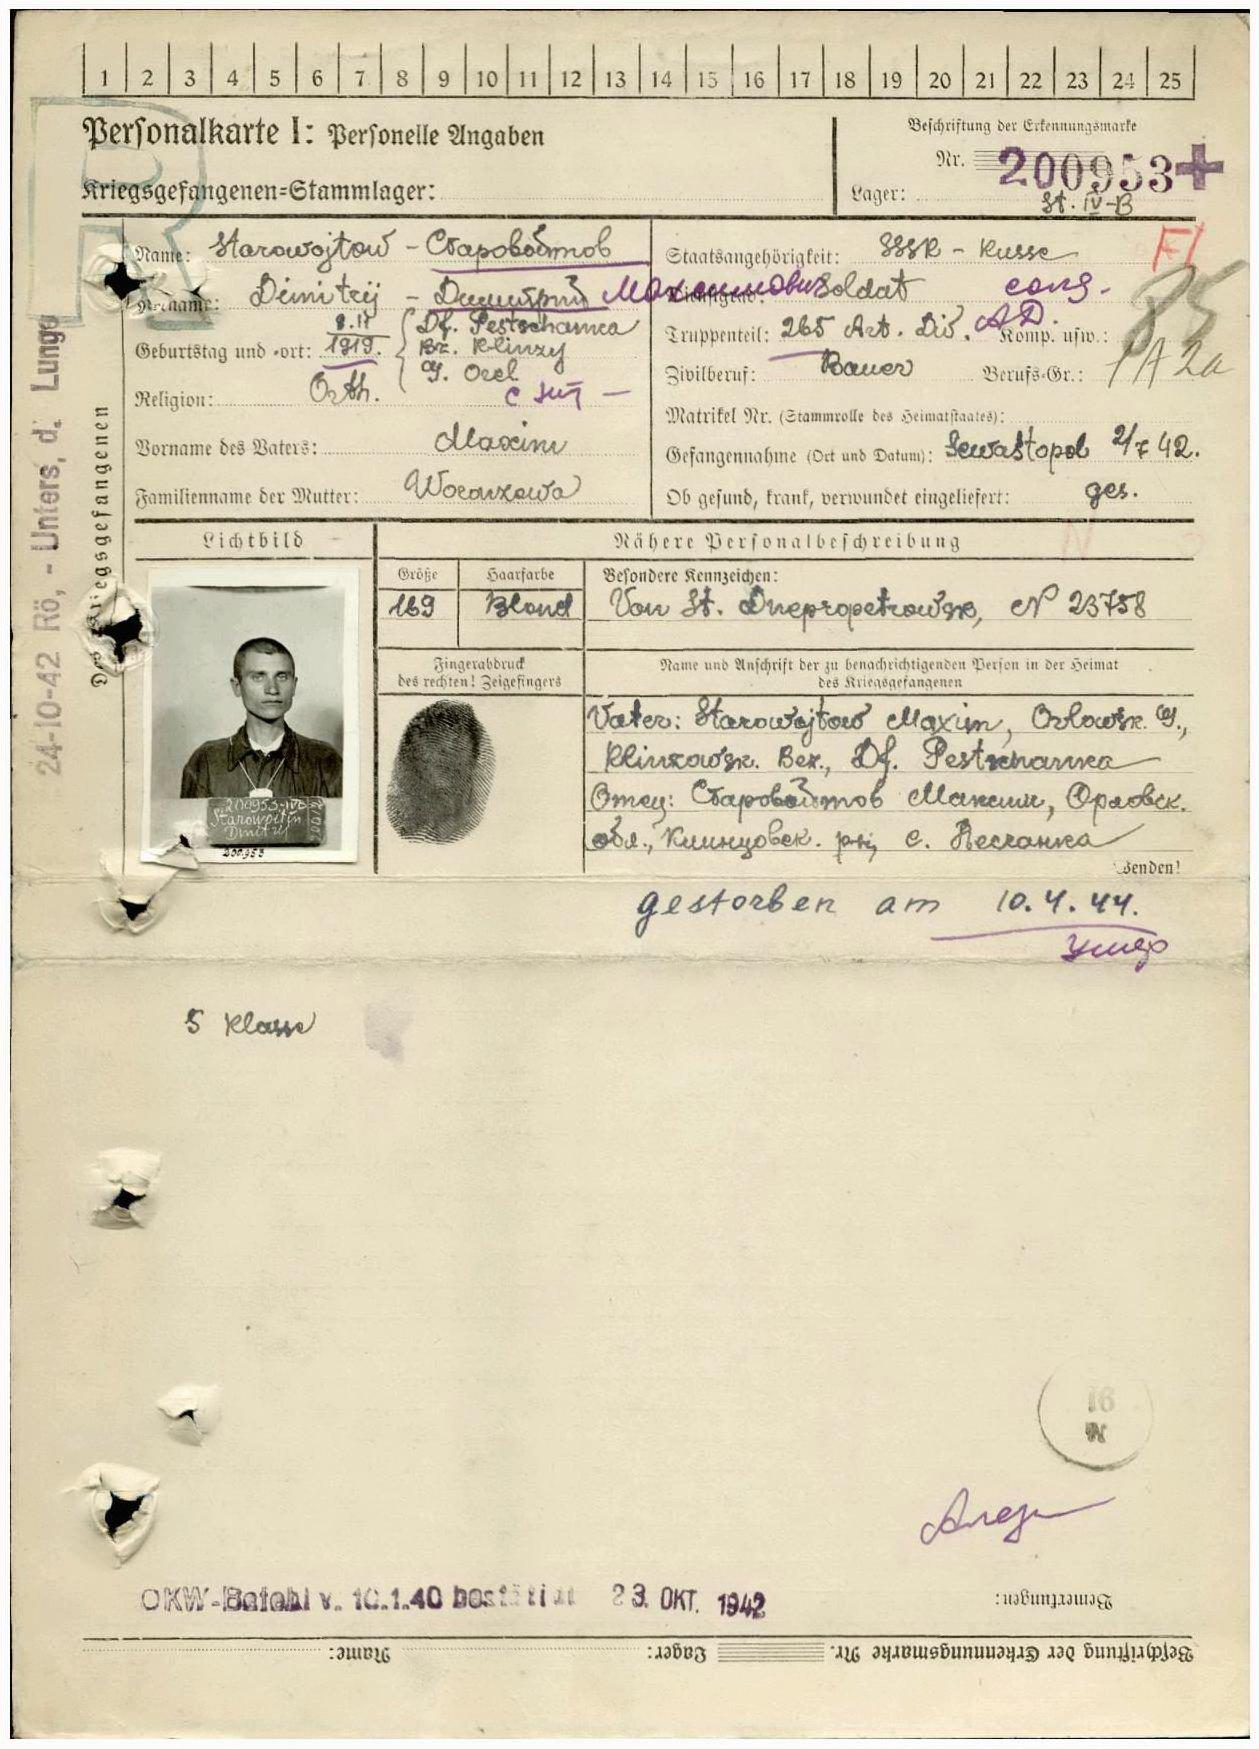 1 2 3 4 5 6 7 8 9 10 11 12 13 14 15 16 17 18 19 20 21 22 23 24 25
Personalkarte I: Personelle Angaben
Kriegsgefangenen=Stammlager:
Beschriftung der Erkennungsmarke
Nr. 200953+
Lager: St. IV-B
Name: Starowojtow - Старовойтов
Vorname: Dimitrij - Дмитрий Максимович
Geburtstag und -ort: 8.IV 1919. Df. Pestschanка
Bz. Klinzy
G. Orel
Religion: Orth.
Vorname des Vaters: Maxim
Familienname der Mutter:
Staatsangehörigkeit: SSSR - Russe
Dienstgrad: Soldat солд.
Truppenteil: 265 Art. Div. АД. Komp. usw.:
Zivilberuf: Bauer Berufs-Gr.: 1A2a
Matrikel Nr. (Stammrolle des Heimatstaates):
Gefangennahme (Ort und Datum): Sewastopol 2/7 42.
Ob gesund, krank, verwundet eingeliefert: ges.
Fl
85
24-10-42 Rö, - Unters, d. Lunge
Des Kriegsgefangenen
Lichtbild
Nähere Personalbeschreibung
Größe
169
Haarfarbe
Blond
Besondere Kennzeichen:
Von St. Dnepropetrowsk, N 23758
Fingerabdruck
des rechten! Zeigefingers
Name und Anschrift der zu benachrichtigenden Person in der Heimat
des Kriegsgefangenen
Vater: Starowojtow Maxim, Orlowsk. G.,
Klinzowsk. Bez., Df. Pestschanка
Отец: Старовойтов Максим, Орловск.
обл., Клинцовск. рн, с. Песчанка
Wenden!
200953-IVB
Dmitrij
200953
gestorben am 10.4.44.
умер
5 Klasse
16
OKW-Befehl v. 10.1.40 bestätigt 23. OKT. 1942
Bemerkungen:
Beschriftung der Erkennungsmarke Nr. Lager: Name: